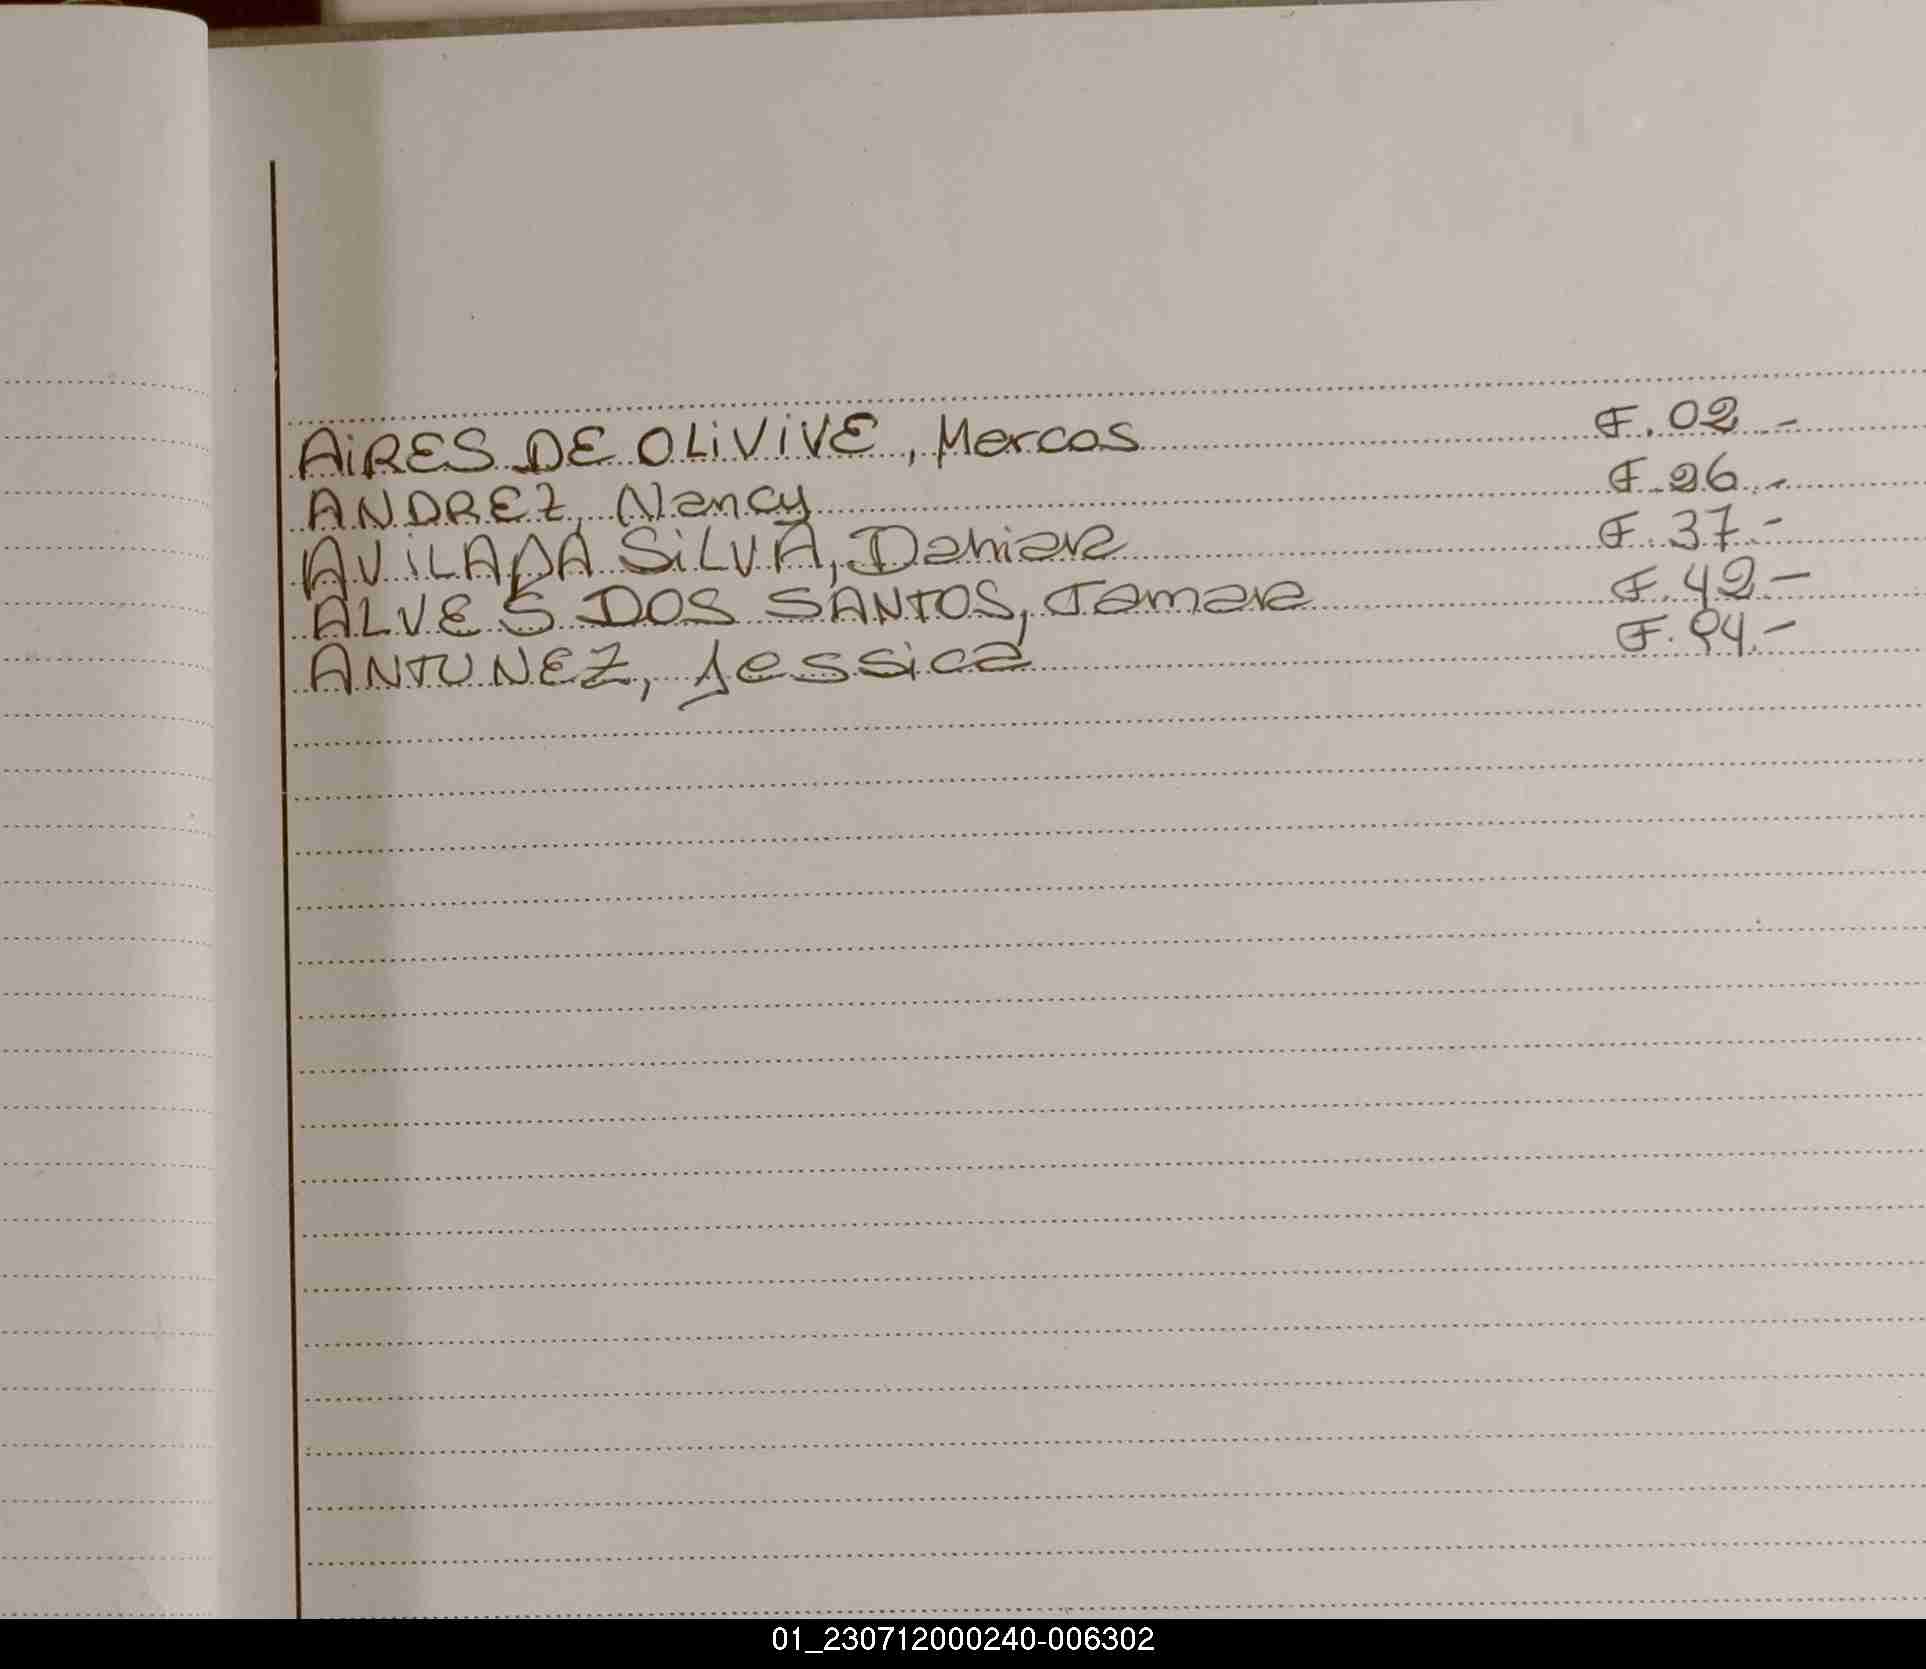 AiRES DE OLiViVE, Marcos F. 02 -
ANDREZ, Nancy F. 26. -
AViLA DA SiLVA, Dahiara F. 37. -
ALVES DOS SANTOS, Tamara F. 42 -
ANTUNEZ, Jessica F. 94. -
01_230712000240-006302